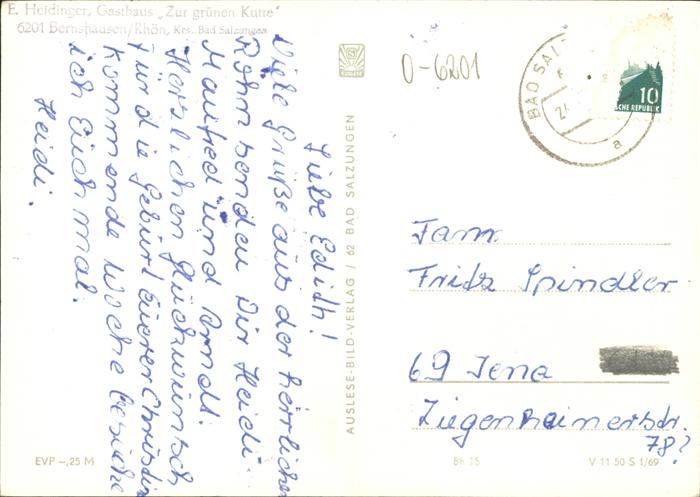 E. Heidinger, Gasthaus „Zur grünen Kutte"
6201 Bernshausen/Rhön, Krs. Bad Salzungen
Liebe Edith!
Viele Grüße aus der herrlichen
Röhn senden Dir Heidi
Manfred und Arndt.
Herzlichen Glückwunsch
für die Geburt Eurer Christin
kommende Woche besuche
ich Euch mal.
Heidi.
AUSLESE-BILD-VERLAG / 62 BAD SALZUNGEN
0-6201
BAD SAL
a
10
SCHE REPUBLIK
Fam.
Fritz Spindler
69 Jena
Ziegenhainerstr.
78?
EVP –,25 M
Bh 15
V 11 50 S 1/69